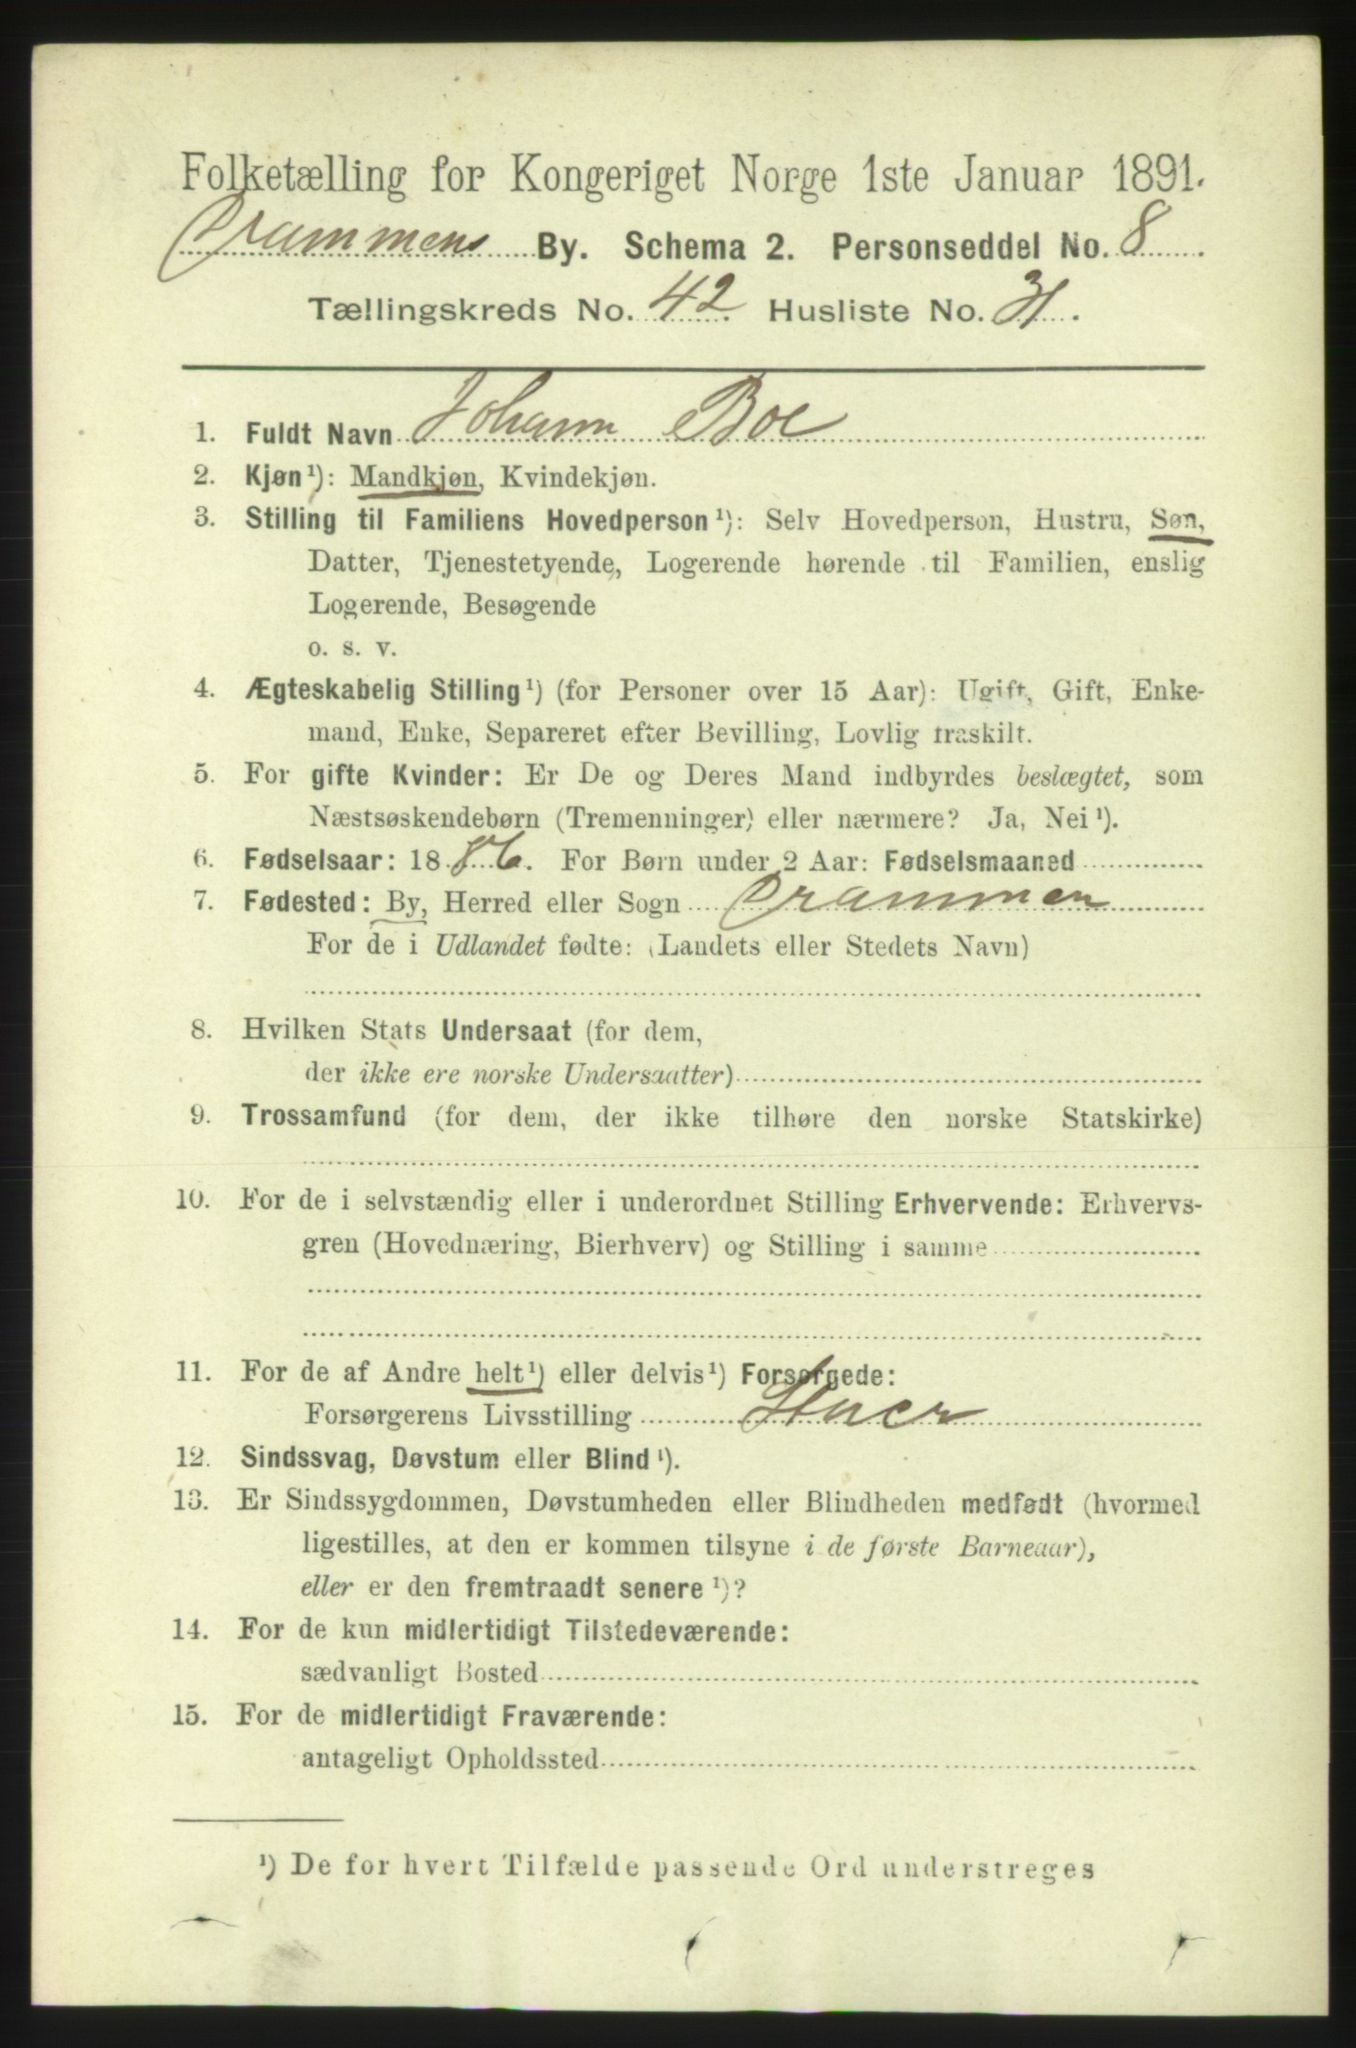 Folketælling for Kongeriget Norge 1ste Januar 1891.
Drammens By. Schema 2. Personseddel No. 8
Tællingskreds No. 42. Husliste No. 31.
1. Fuldt Navn Johann Boe
2. Kjøn¹): Mandkjøn, Kvindekjøn.
3. Stilling til Familiens Hovedperson¹): Selv Hovedperson, Hustru, Søn,
Datter, Tjenestetyende, Logerende hørende til Familien, enslig
Logerende, Besøgende
o. s. v.
4. Ægteskabelig Stilling¹) (for Personer over 15 Aar): Ugift, Gift, Enke-
mand, Enke, Separeret efter Bevilling, Lovlig fraskilt.
5. For gifte Kvinder: Er De og Deres Mand indbyrdes beslægtet, som
Næstsøskendebørn (Tremenninger) eller nærmere? Ja, Nei¹).
6. Fødselsaar: 1886. For Børn under 2 Aar: Fødselsmaaned
7. Fødested: By, Herred eller Sogn Drammen
For de i Udlandet fødte: (Landets eller Stedets Navn)
8. Hvilken Stats Undersaat (for dem,
der ikke ere norske Undersaatter)
9. Trossamfund (for dem, der ikke tilhøre den norske Statskirke)
10. For de i selvstændig eller i underordnet Stilling Erhvervende: Erhvervs-
gren (Hovednæring, Bierhverv) og Stilling i samme
11. For de af Andre helt¹) eller delvis¹) Forsørgede:
Forsørgerens Livsstilling Stuer
12. Sindssvag, Døvstum eller Blind¹).
13. Er Sindssygdommen, Døvstumheden eller Blindheden medfødt (hvormed
ligestilles, at den er kommen tilsyne i de første Barneaar),
eller er den fremtraadt senere¹)?
14. For de kun midlertidigt Tilstedeværende:
sædvanligt Bosted
15. For de midlertidigt Fraværende:
antageligt Opholdssted
¹) De for hvert Tilfælde passende Ord understreges